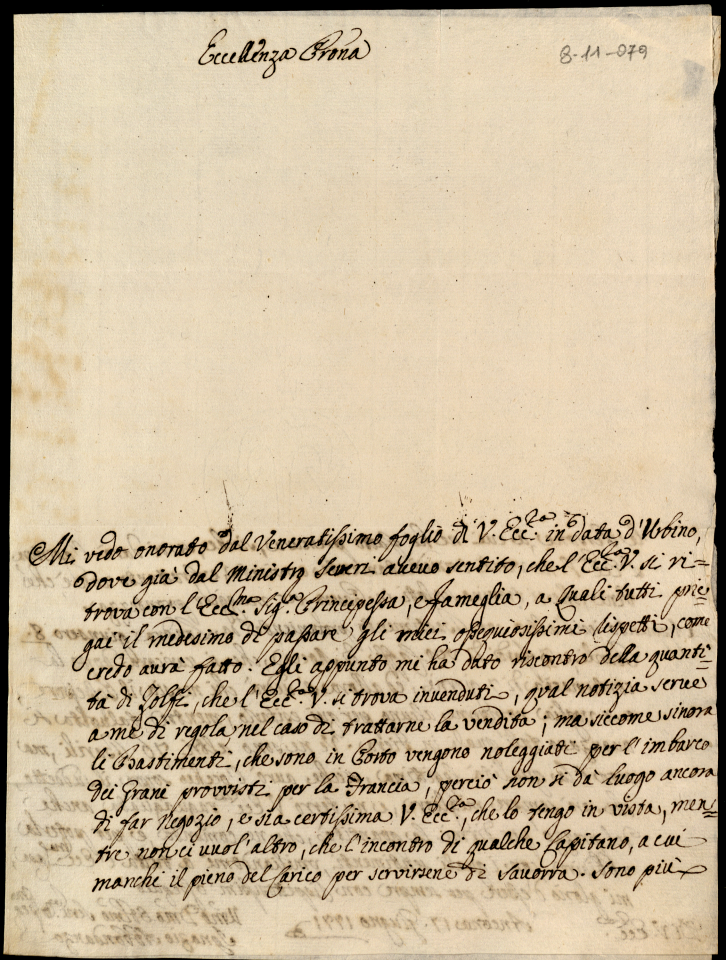 Eccellenza Prona
8-11-079
Mi vedo onorato dal Veneratissimo foglio di V. Ecc.za in data d'Urbino,
dove già dal Ministro Severi avevo sentito, che l'Ecc.za V. si ri=
trova con l'Ecc.ma Sig.ra Principessa, e fameglia, a quali tutti prie=
gai il medesimo di passare gli miei ossequiosissimi rispetti, come
credo aurà fatto. Egli appunto mi ha dato riscontro della quanti=
tà di Zolfi, che l'Ecc.za V. si trova invenduti, qual notizia serve
a me di regola nel caso di trattarne la vendita; ma siccome sinora
li Bastimenti, che sono in Porto vengono noleggiati per l'imbarco
dei Grani provvisti per la Francia, perciò non si dà luogo ancora
di far negozio, e sia certissima V. Ecc.za, che lo tengo in vista, men=
tre non ci vuol'altro, che l'incontro di qualche Capitano, a cui
manchi il pieno del Carico per servirsene di Savorra. Sono più